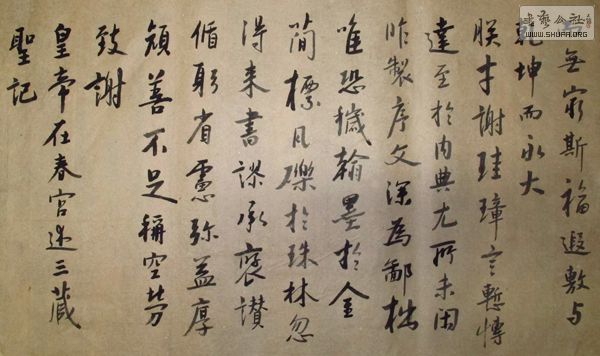 無窮斯福遐敷与
乾坤而永大
朕才謝珪璋言慙博
達至於内典尤所未閑
昨製序文深為鄙拙
唯恐穢翰墨於金
簡標瓦礫於珠林忽
得来書謬承褒讃
循躬省慮弥益厚
顔善不足稱空勞
致謝
皇帝在春宮述三藏
聖記
书艺公社
WWW.SHUFA.ORG